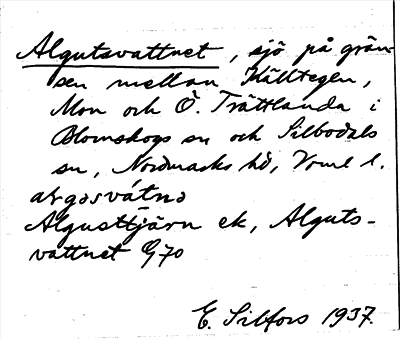 Algutsvattnet, sjö på grän-
sen mellan Källtegen,
Mon och Ö. Trättlanda i
Blomskogs sn och Silbodals
sn, Nordmarks hd, Vrml l.
aʟgəsvátnə
Algusttjärn ek, Alguts-
vattnet G70
E. Silfors 1937.